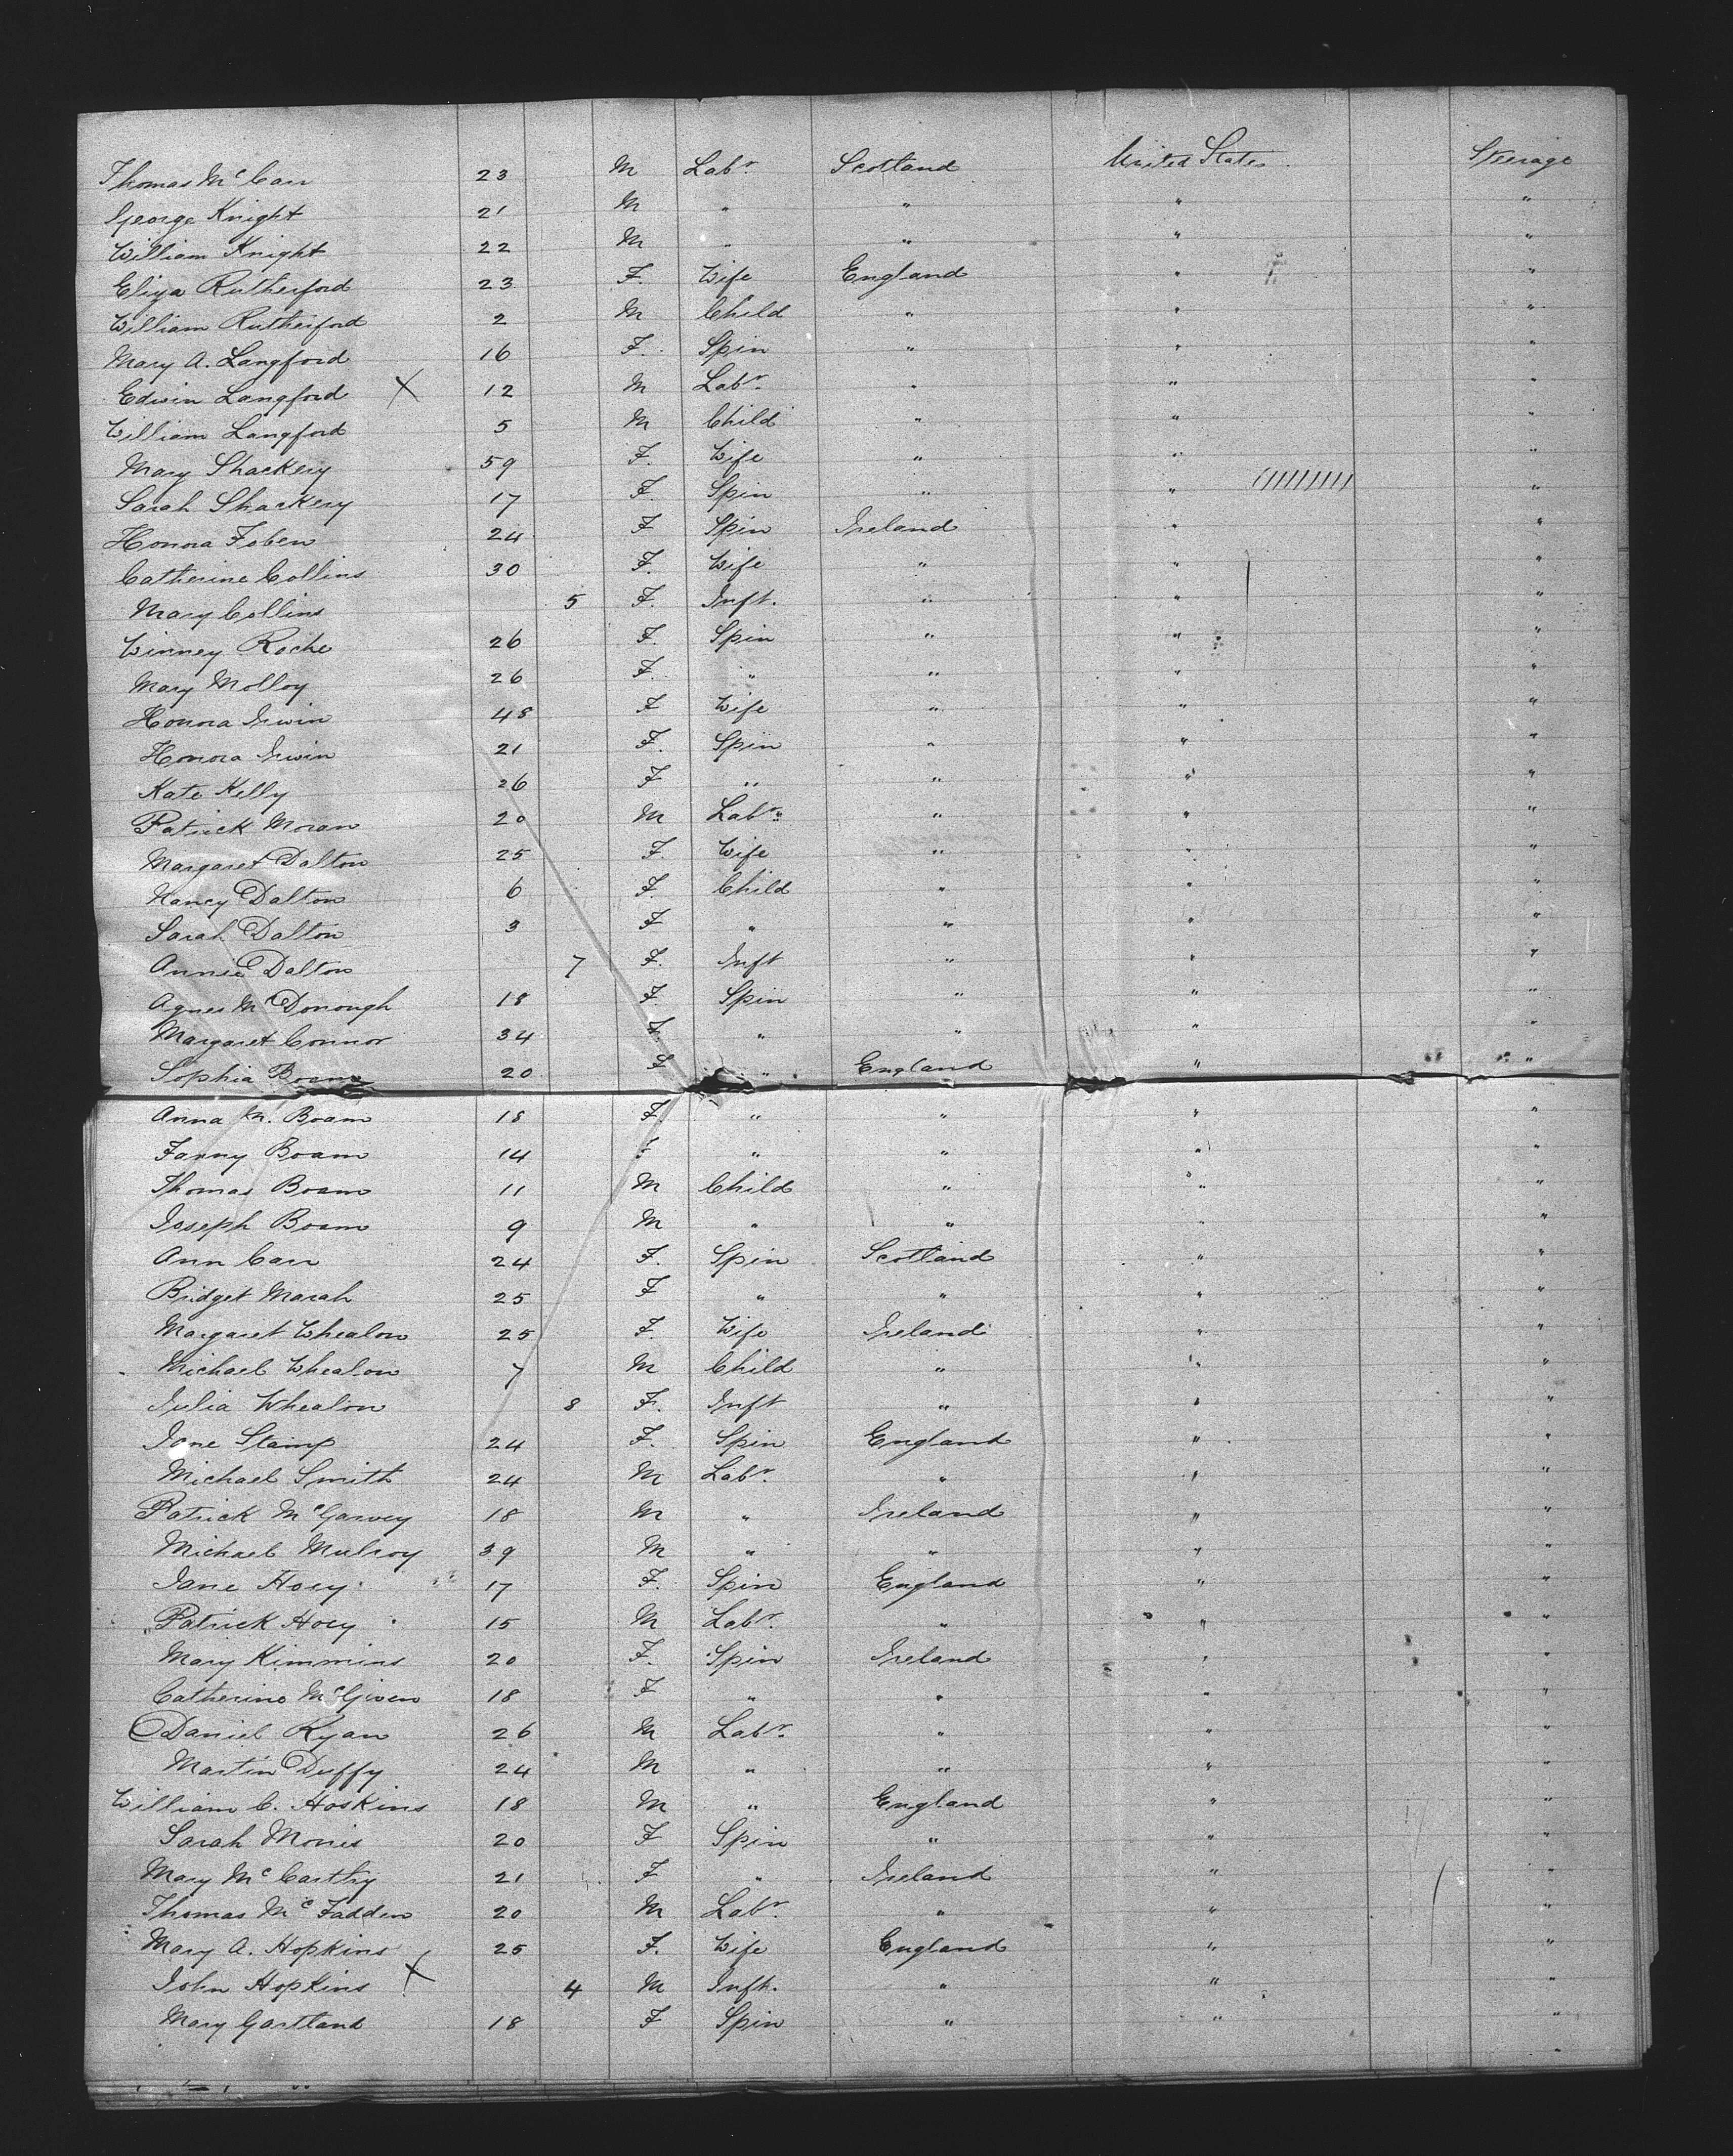 Thomas McCarr 23 M Labr. Scotland United States Steerage
George Knight 21 M " " " "
William Knight 22 M " " " "
Eliza Rutherford 23 F. Wife England " "
William Rutherford 2 M Child " " "
Mary A. Langford 16 F. Spin " " "
Edwin Langford X 12 M Labr. " " "
William Langford 5 M Child " " "
Mary Shackery 59 F. Wife " " "
Sarah Shackery 17 F. Spin " " "
Honora Foben 24 F Spin Ireland " "
Catherine Collins 30 F. Wife " " "
Mary Collins 5 F. Inft. " " "
Winney Roche 26 F. Spin " " "
Mary Molloy 26 F. " " " "
Honora Irwin 48 F Wife " " "
Honora Irwin 21 F. Spin " " "
Kate Kelly 26 F " " " "
Patrick Moran 20 M Labr. " " "
Margaret Dalton 25 F. Wife " " "
Nancy Dalton 6 F. Child " " "
Sarah Dalton 3 F " " " "
Annie Dalton 7 F. Inft " " "
Agnes McDonough 18 F. Spin " " "
Margaret Connor 34 F. " " " "
Sophia Boam 20 F " England " "
Anna M. Boam 18 F. " " " "
Fanny Boam 14 F " " " "
Thomas Boam 11 M Child " " "
Joseph Boam 9 M " " " "
Ann Carr 24 F. Spin Scotland " "
Bridget Marah 25 F " " " "
Margaret Whealon 25 F. Wife Ireland " "
Michael Whealon 7 M Child " " "
Julia Whealon 8 F. Inft " " "
Jane Stamp 24 F. Spin England " "
Michael Smith 24 M Labr. " " "
Patrick McGarvey 18 M " Ireland " "
Michael Mulroy 39 M " " " "
Jane Hoey 17 F. Spin England " "
Patrick Hoey 15 M Labr. " " "
Mary Kimmins 20 F. Spin Ireland " "
Catherine McGiven 18 F " " " "
Daniel Ryan 26 M Labr. " " "
Martin Duffy 24 M " " " "
William C. Hoskins 18 M " England " "
Sarah Morris 20 F Spin " " "
Mary McCarthy 21 F " Ireland " "
Thomas McFadden 20 M Labr. " " "
Mary A. Hopkins 25 F. Wife England " "
John Hopkins X 4 M Inft. " " "
Mary Gartland 18 F Spin " " "